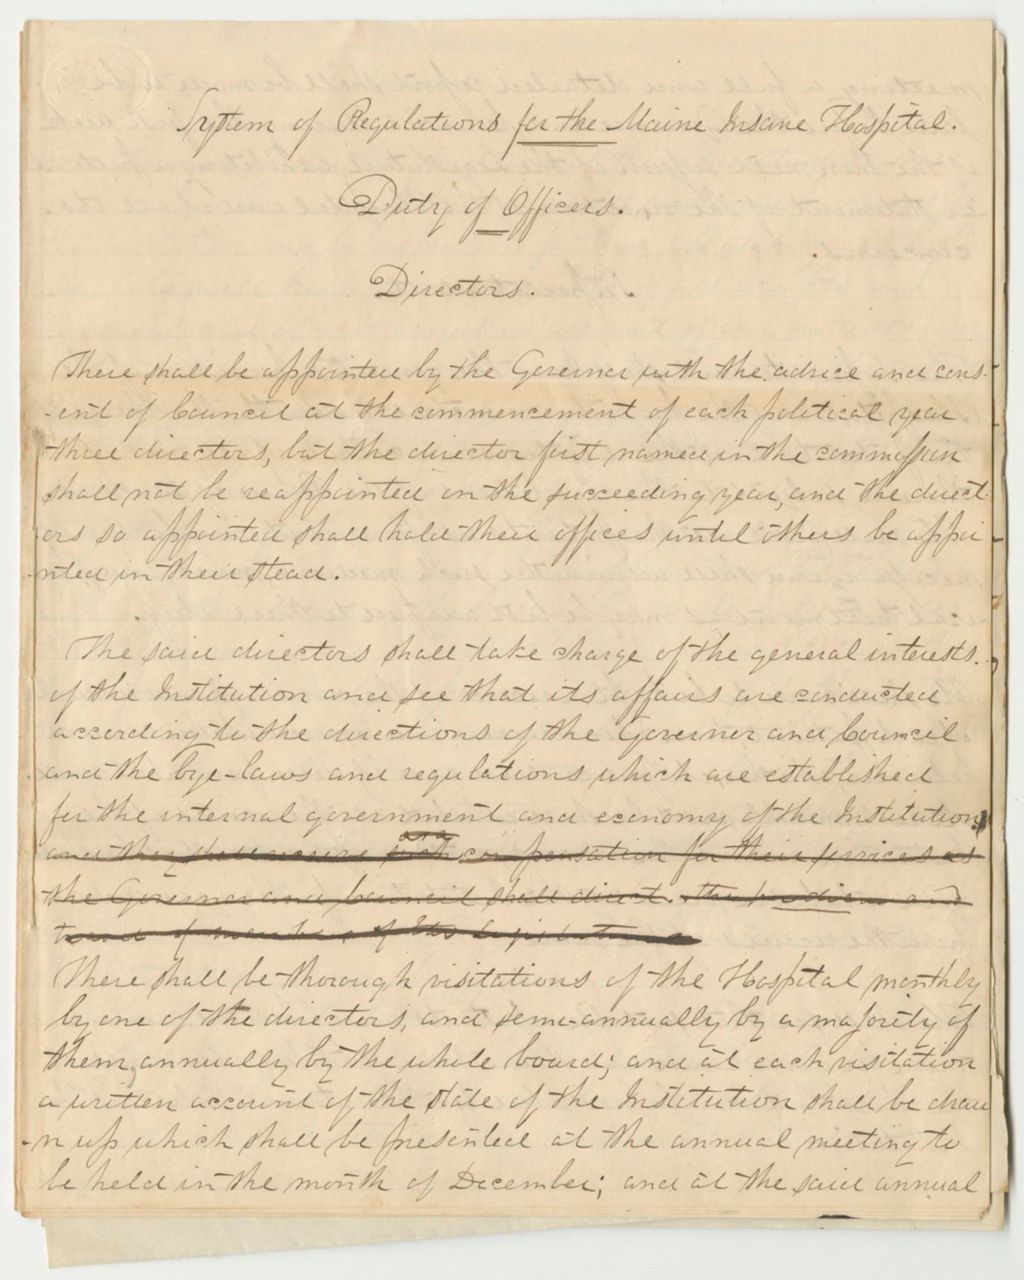 System of Regulations for the Maine Insane Hospital.
Duty of Officers.
Directors.
There shall be appointed by the Governor with the advice and cons-
-ent of Council at the commencement of each political year,
three directors, but the director first named in the commission
shall not be reappointed on the succeeding year, and the direct-
ors so appointed shall hold their offices until others be appoi
-nted in their stead.
The said directors shall take charge of the general interests.
of the Institution and see that its affairs are conducted
according to the directions of the Governor and Council
and the bye-laws and regulations which are established
for the internal government and economy of the Institution
and they shall receive such compensation for their services as
the Governor and Council shall direct. the per diem and
travel of members of the Legislature
There shall be thorough visitations of the Hospital monthly
by one of the directors, and semi-annually by a majority of
them, annually by the whole board; and at each visitation
a written account of the state of the Institution shall be draw
-n up which shall be presented at the annual meeting to
be held in the month of December; and at the said annual